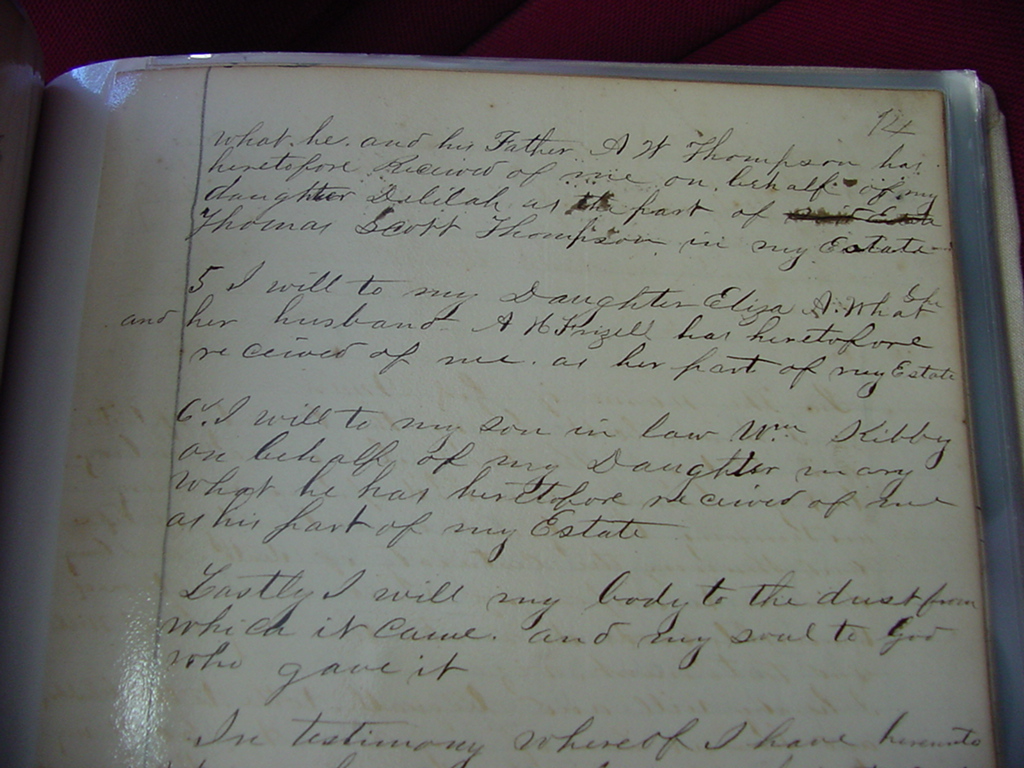 14
what he. and his Father A W Thompson has
heretofore Received of me on behalf of my
daughter Delilah as the part of
Thomas Scott Thompson in my Estate
5 I will to my Daughter Eliza A. What She
and her husband A H Frizell has heretofore
received of me. as her part of my Estate
6th I will to my son in law Wm Kibby
on behalf of my Daughter mary
What he has heretofore received of me
as his part of my Estate
Lastly I will my body to the dust from
which it came. and my soul to God
who gave it
In testimony whereof I have hereunto